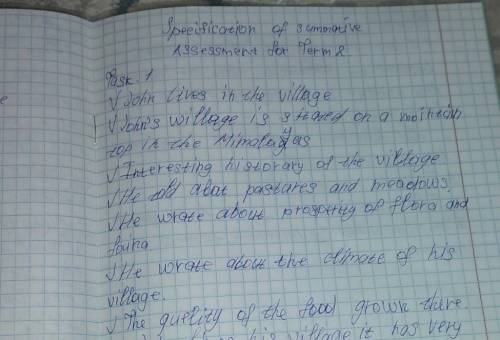 Specification of summative
Assessment for Term 2
Task 1
√ John lives in the village
√ John's willage is stared on a mointain
top in the Mimalayas
√ Interesting historary of the village
√ He old abat pastares and meadows.
√ He wrate about prospiriy of flora and
fauna
√ He wrate about the climate of his
village.
√ The quelity of the food grown there.
his village it has very